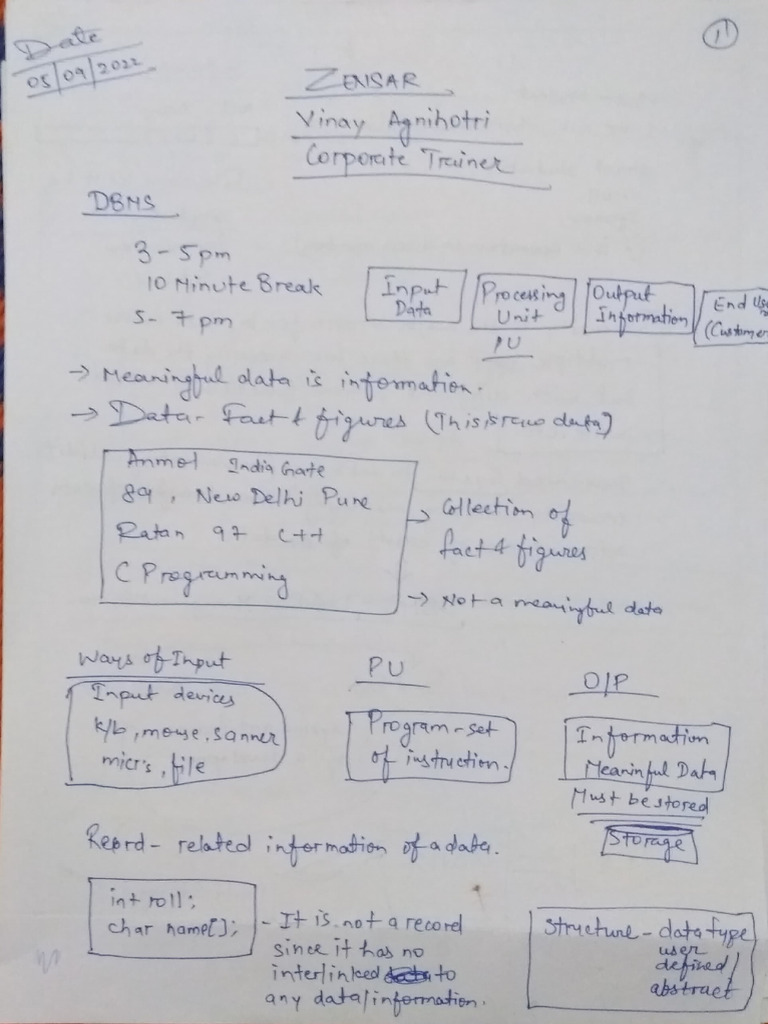 Date
05/09/2022
1
ZENSAR
Vinay Agnihotri
Corporate Trainer
DBMS
3 - 5 pm
10 Minute Break
5 - 7 pm
Input
Data
Processing
Unit
PU
Output
Information
End Use
(Customer
→ Meaningful data is information.
→ Data - Fact & figures (This is raw data)
Anmol India Gate
89, New Delhi Pune
Ratan 97 C++
C Programming
→ Collection of
fact & figures
→ Not a meaningful data
Ways of Input
Input devices
k/b, mouse, sanner
micrs, file
PU
Program - set
of instruction.
O/P
Information
Meaninful Data
Must be stored
Storage
Record - related information of a data.
int roll;
char name[];
- It is not a record
since it has no
interlinked to
any data/information.
Structure - data type
user
defined/
abstract